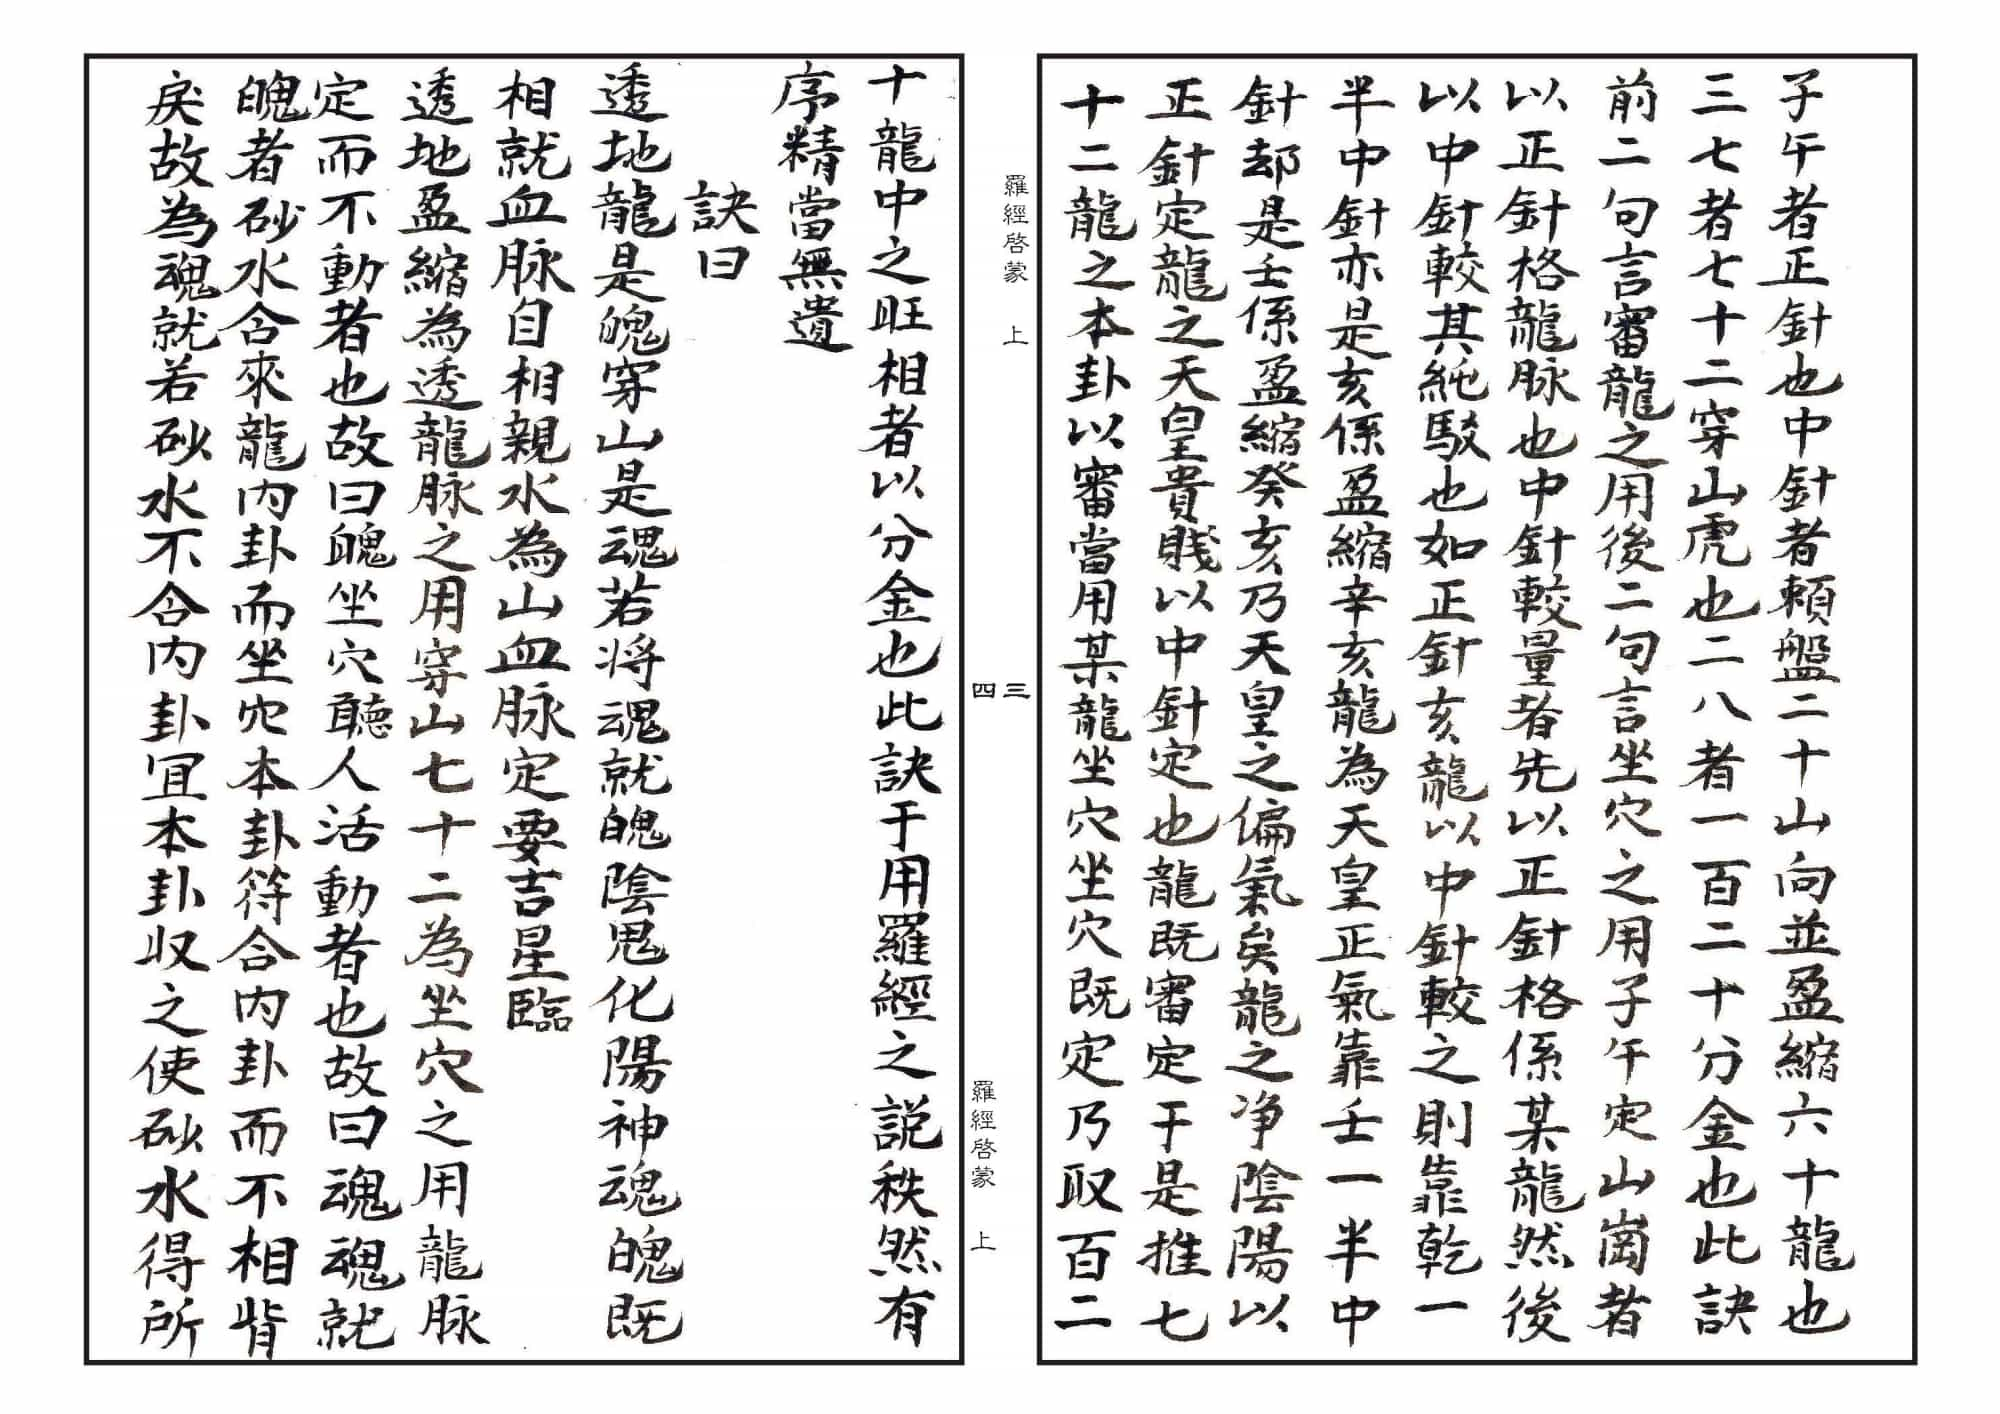 子午者正針也中針者賴盤二十山向並盈縮六十龍也
三七者七十二穿山虎也二八者一百二十分金也此訣
前二句言審龍之用後二句言坐穴之用子午定山崗者
以正針格龍脉也中針較量者先以正針格係某龍然後
以中針較其純駁也如正針亥龍以中針較之則靠乾一
半中針亦是亥係盈縮辛亥龍為天皇正氣靠壬一半中
針却是壬係盈縮癸亥乃天皇之偏氣矣龍之净陰陽以
正針定龍之天皇貴賎以中針定也龍既審定于是推七
十二龍之本卦以審當用某龍坐穴坐穴既定乃取百二
羅經啓蒙 上
三
四
羅經啓蒙 上
十龍中之旺相者以分金也此訣于用羅經之説秩然有
序精當無遺
訣曰
透地龍是魄穿山是魂若将魂就魄陰鬼化陽神魂魄既
相就血脉自相親水為山血脉定要吉星臨
透地盈縮為透龍脉之用穿山七十二為坐穴之用龍脉
定而不動者也故曰魄坐穴聽人活動者也故曰魂魂就
魄者砂水合來龍内卦而坐穴本卦符合内卦而不相背
戾故為魂就若砂水不合内卦宜本卦収之使砂水得所